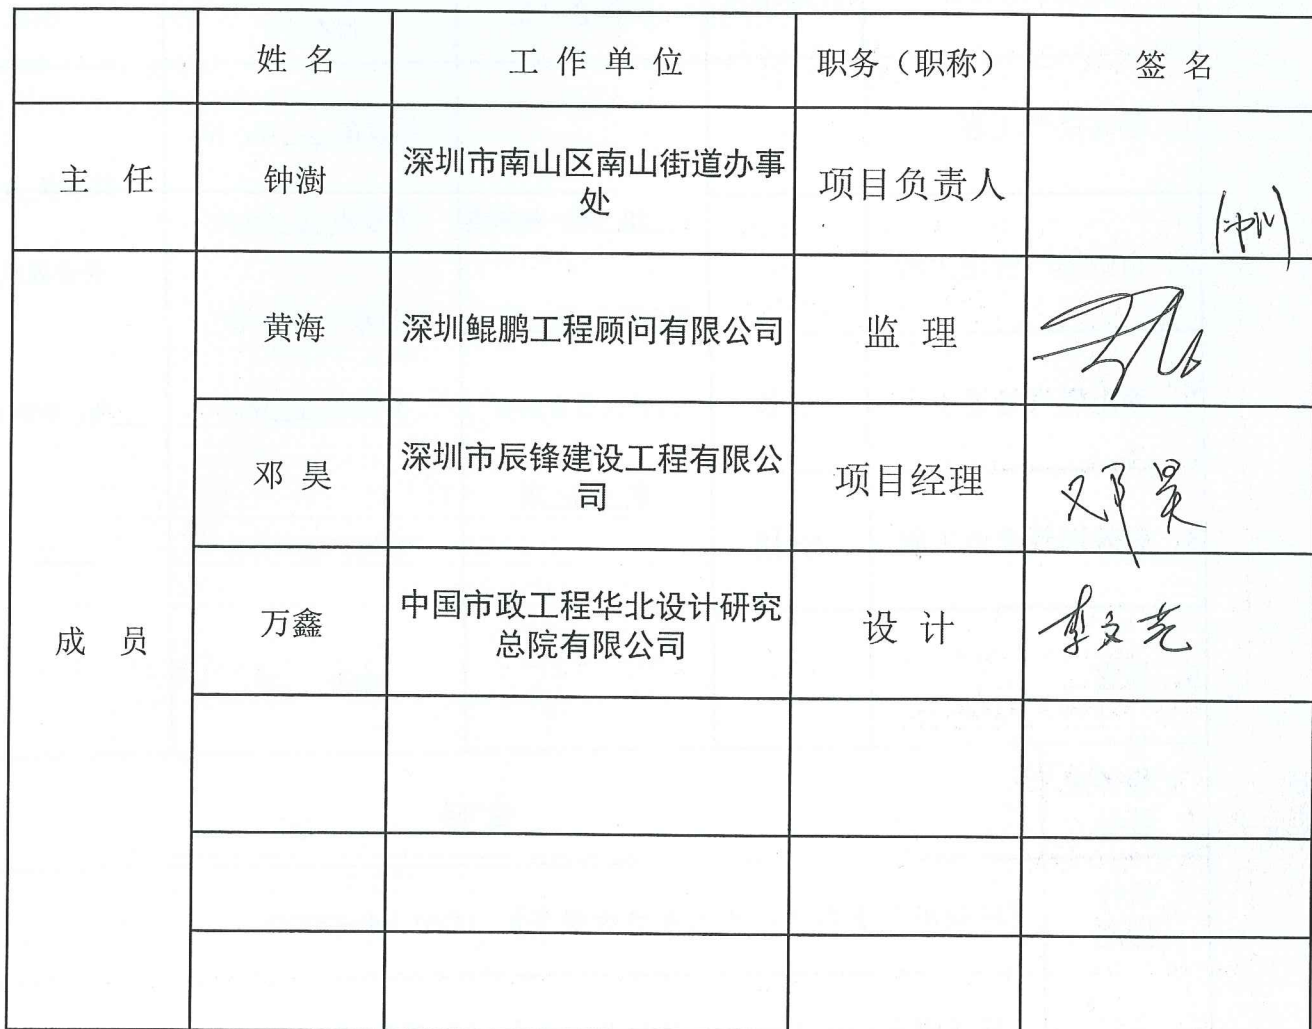 姓 名 工 作 单 位 职务（职称） 签 名
主 任 钟澍 深圳市南山区南山街道办事
处 项目负责人
黄海 深圳鲲鹏工程顾问有限公司 监 理
邓 昊 深圳市辰锋建设工程有限公
司 项目经理 邓昊
成 员 万鑫 中国市政工程华北设计研究
总院有限公司 设 计 李文亮